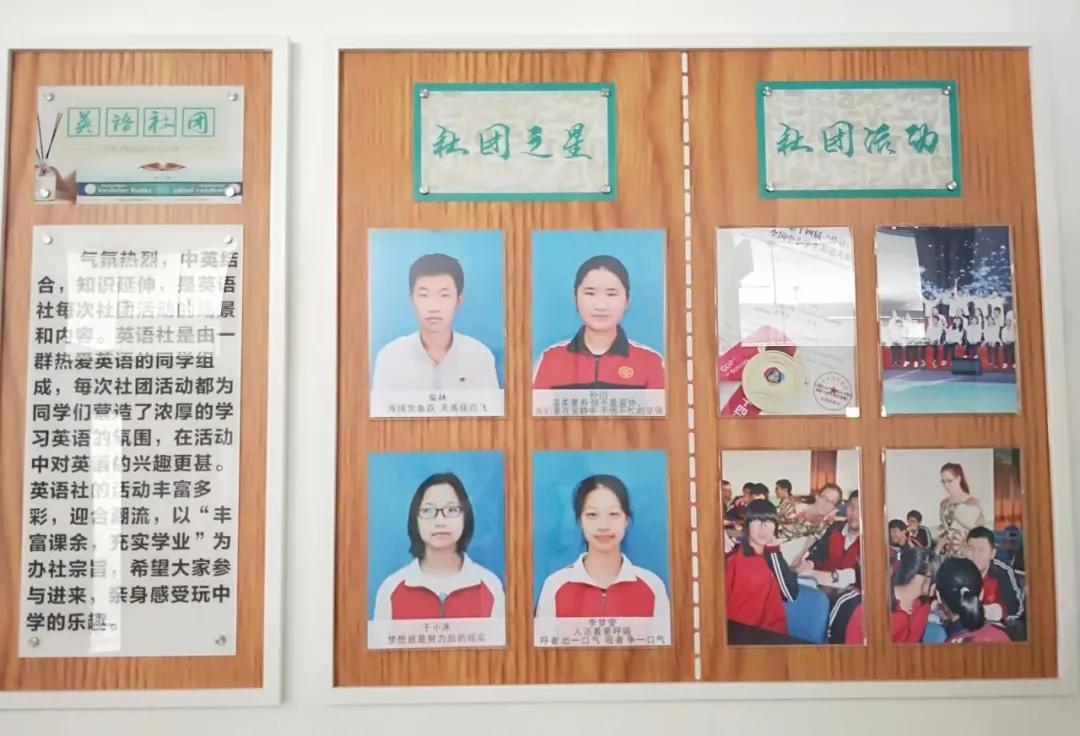 英语社团
THE ENGLISH CLUB
气氛热烈，中英结
合，知识延伸，是英语
社每次社团活动的场景
和内容。英语社是由一
群热爱英语的同学组
成，每次社团活动都为
同学们营造了浓厚的学
习英语的氛围，在活动
中对英语的兴趣更甚。
英语社的活动丰富多
彩，迎合潮流，以“丰
富课余，充实学业”为
办社宗旨，希望大家参
与进来，亲身感受玩中
学的乐趣。
社团之星
柴林
海阔凭鱼跃 天高任鸟飞
温柔要有 但不是妥协，
我们要在安静中 不慌不忙的坚强
于小禾
梦想就是努力后的现实
李梦莹
人活着要呼吸
呼者 出一口气 吸者 争一口气
社团活动